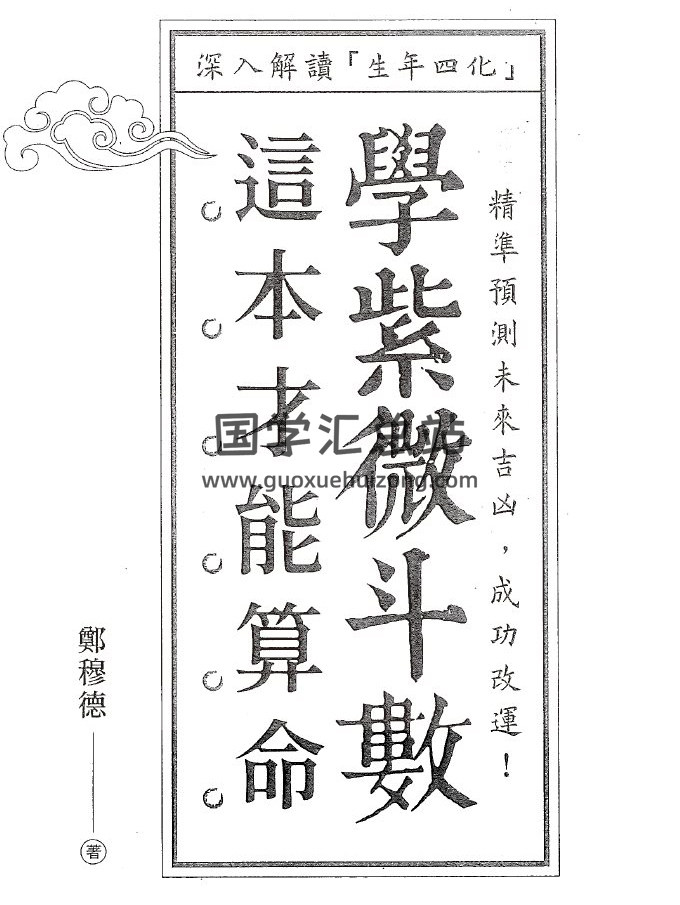 深入解讀「生年四化」
精準預測未來吉凶，成功改運！
學紫微斗數
這本才能算命
鄭穆德 著
国学汇总站
www.guoxuehuizong.com